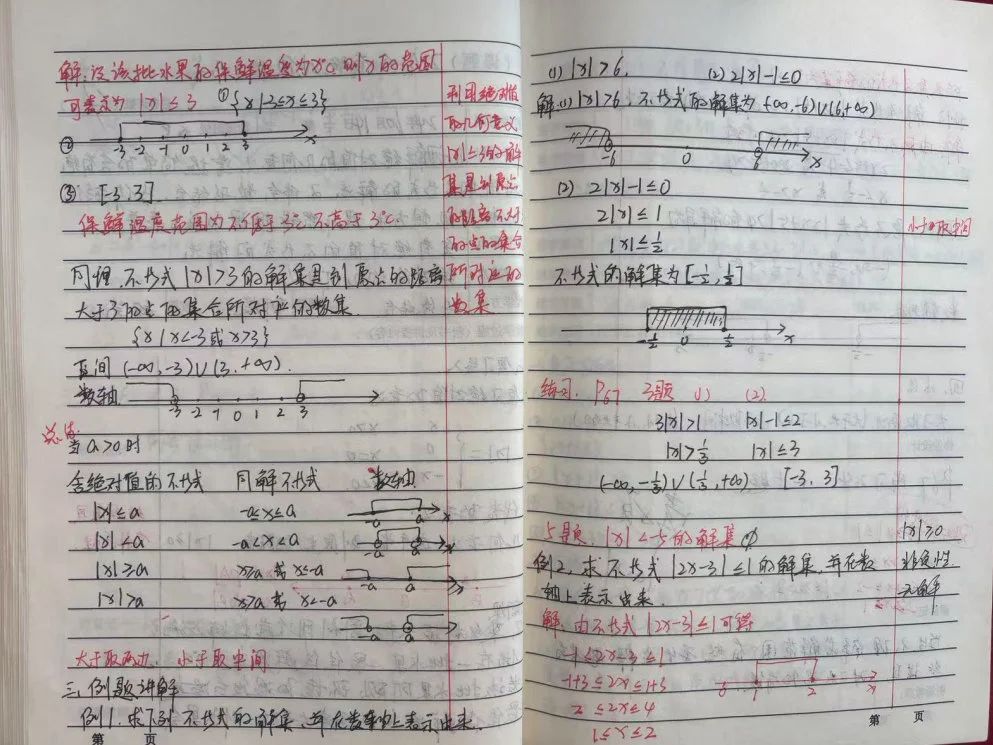 解:设该批水果的保鲜温度为x℃ 则x的范围
可表示为 |x|≤3 ① {x|-3≤x≤3}
②
-3 -2 -1 0 1 2 3 x
③ [-3,3]
保鲜温度范围为不低于-3℃不高于3℃
利用绝对值
的几何意义
|x|≤3的解
集是到原点
的距离不大
的点的集合
所对应的
数集
同理,不等式|x|>3的解集是到原点的距离
大于3的点的集合所对应的数集
{x|x<-3或x>3}
区间 (-∞,-3)∪(3,+∞).
数轴
-3 -2 -1 0 1 2 3
总结
当a>0时
含绝对值的不等式 同解不等式 数轴
|x|≤a -a≤x≤a -a a x
|x|<a -a<x<a -a a x
|x|≥a x≥a 或 x≤-a -a a x
|x|>a x>a 或 x<-a -a a
大于取两边,小于取中间
三.例题讲解
例1.求下列不等式的解集,并在数轴上表示出来.
第 页
(1) |x|>6. (2) 2|x|-1≤0
解:(1) |x|>6 不等式的解集为 (-∞,-6)∪(6,+∞)
-6 0 6 x
(2) 2|x|-1≤0
2|x|≤1
|x|≤1/2
小于取中间
不等式的解集为[-1/2,1/2]
-1/2 0 1/2 x
练习. P67 3题 (1) (2)
3|x|>1 |x|-1≤2
|x|>1/3 |x|≤3
(-∞,-1/3)∪(1/3,+∞) [-3,3]
5题 |x|<-5的解集∅
|x|≥0
非负性
无解
例2.求不等式|2x-3|≤1的解集,并在数
轴上表示出来.
解:由不等式|2x-3|≤1可得
-1≤2x-3≤1
-1+3≤2x≤1+3
2≤2x≤4
1≤x≤2
0 1 2 x
第 页